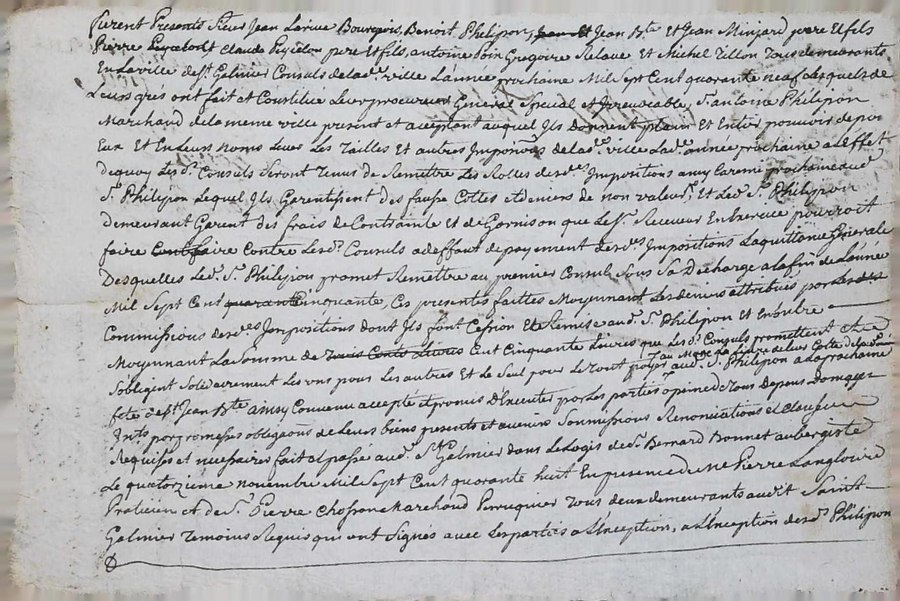 furent Presents Sieurs Jean Larive Bourgeois, Benoit Philipon, Jean Bte Et Jean Minjard pere Et fils
Pierre Peycelon Et Claude Peycelon pere Et fils, antoine Gregoire Et Michel Tillon Tous demeurants
En la ville de st. Galmier Consuls de lade. ville Lannée prochaine Mil Sept Cent quarante neuf lesquels de
Leurs grés ont fait et Constitué Leur procureur General Special et Irrevocable, Sr. antoine Philipon
Marchand de la meme ville present et acceptant auquel Ils Donnent plain Et Entier pouvoir de pour
Eux Et En leurs noms lever Les Tailles Et autres Impons. de lade. ville Lade. année prochaine a l'Effet
dequoy Lesds. Consuls Seront Tenus de Remettre Les Rolles desdes. Impositions prochaine aud.
Sr. Philipon Lequel Ils Garentissent des fausses Cottes et deniers de non valeurs, Et Led. Sr. Philipon
demeurant Garent des frais de Contrainte Et de Garnison que le Sr. Receveur En Exercice pourroit
faire Contre Lesds. Consuls a deffaut de payement desdes. Impositions La quittance Generale
Desquelles Led. Sr. Philipon promet Remettre au premier Consul Sous Sa Decharge a la fin de L'année
Mil Sept Cent quarante Cinquante, Ces presentes faittes Moyennant Les deniers attribués par Les
Commissions desdes. Impositions dont Ils font Cession Et Remise aud. Sr. Philipon Et En outre
Moyennant La Somme de Trois Cents Livres Cent Cinquante Livres que Lesds. Consuls promettent et
Sobligent Solidairement Les uns pour Les autres Et Le Seul pour Le Tout payer aud. Sr. Philipon a la prochaine
fete de St. Jean Bte. ainsy Convenu accepté et promis D'Executer par Les parties a peine de Tous Depens Domages
Ints. par promesses obligaons. de Leurs biens presents et avenir Soumissions Renonciations et Clauses
Requises et necessaires fait et passé aud. St. Galmier dans Le Logis de Sr. Bernard Bonnet aubergiste
Le quatorzieme novembre Mil Sept Cent quarante huit En presence de Me Pierre Langlois
Praticien et de Sr. Pierre Marchand Perruquier Tous deux demeurants audit Saint
Galmier Temoins Requis qui ont Signes avec Les parties a L'Exception, a L'Exception dud. Sr. Philipon